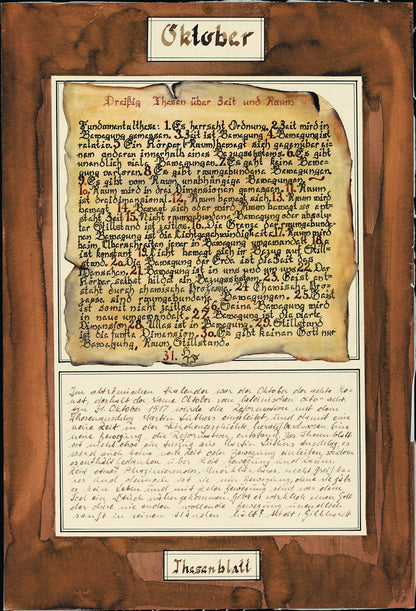 Oktober
Dreißig Thesen über Zeit und Raum
Fundamentalthese: 1. Es herrscht Ordnung. 2. Zeit wird in
Bewegung gemessen. 3. Zeit ist Bewegung 4. Bewegung ist
relativ. 5 Ein Körper (Raum) bewegt sich gegenüber ei-
nem anderen innerhalb eines Bezugssystems. 6. Es gibt
unendlich viele Bewegungen. 7. Es geht keine Bewe-
gung verloren. 8. Es gibt raumgebundene Bewegungen.
9. Es gibt vom Raum unabhängige Bewegungen.
10. Raum wird in drei Dimensionen gemessen. 11. Raum
ist dreidimensional. 12. Raum bewegt sich. 13. Raum wird
bewegt 14. Bewegt sich oder wird Raum bewegt so ent-
steht Zeit 15. Nicht raumgebundene Bewegung oder absolu-
ter Stillstand ist zeitlos. 16. Die Grenze der raumgebunde-
nen Bewegung ist die Lichtgeschwindigkeit. 17. Raum wird
beim Überschreiten jener in Bewegung umgewandelt 18. c
ist konstant 19. Licht bewegt sich in Bezug auf Still-
stand. 20. Die Bewegung der Erde ist die Zeit des
Menschen. 21. Bewegung ist in uns und um uns 22. Der
Körper selbst bildet ein Bezugssystem. 23. Geist ent-
steht durch chemische Prozesse. 24 Chemische Pro-
zesse sind raumgebundene Bewegungen. 25. Geist
ist somit nicht zeitlos. 26. Deine Bewegung wird
in neue umgewandelt. 27. Bewegung ist die vierte
Dimension 28. Alles ist in Bewegung. 29. Stillstand
ist die fünfte Dimension. 30. Es gibt keinen Gott nur
Bewegung, Raum, Stillstand.
31.
Im altrömischen Kalender war der Oktober der achte Mo-
nat, deshalb der Name Oktober vom lateinischen octo = acht.
Am 31. Oktober 1517 wurde die Reformation mit dem
Thesenanschlag Martin Luthers eingeleitet und damit eine
neue Zeit in der Kirchengeschichte heraufbeschworen
neue Bewegung, die Reformierung, entstand. Das Thesenblatt
ist nicht etwa ein Luthers Anschlag, es
wird auch keine neue Zeit oder Bewegung einleiten, sondern
es enthält Gedanken über Zeit, Bewegung und Raum.
Zeit etwas nicht greifba-
res und dennoch ist sie nur Bewegung, ohne sie gäbe
es kein Leben und mit jeder Bewegung sind wir dem
Tod ein Stück näher gekommen. Gibt es wirklich einen Gott
der ohne Bewegung
sanft in seinen Händen hält?
Thesenblatt